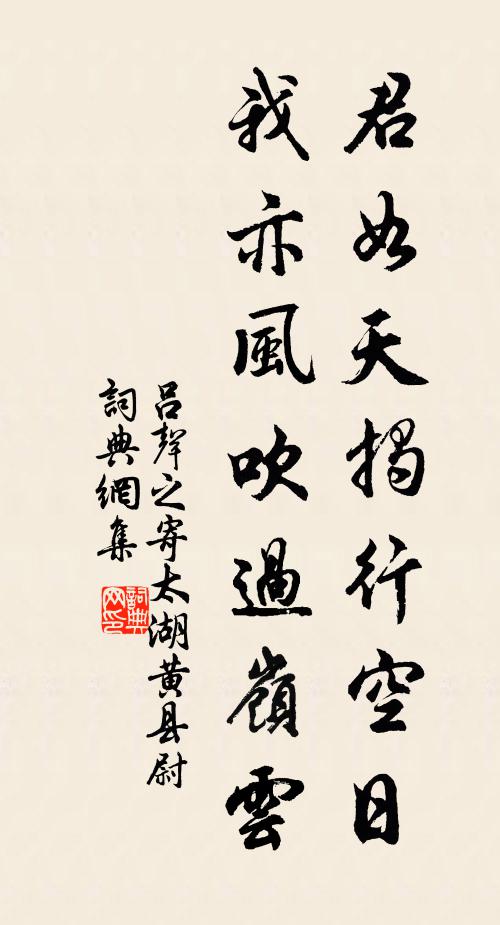 君如天揭行空日
我亦風吹過嶺雲
吕聲之寄太湖黄县尉
詞典網集
詞典网印